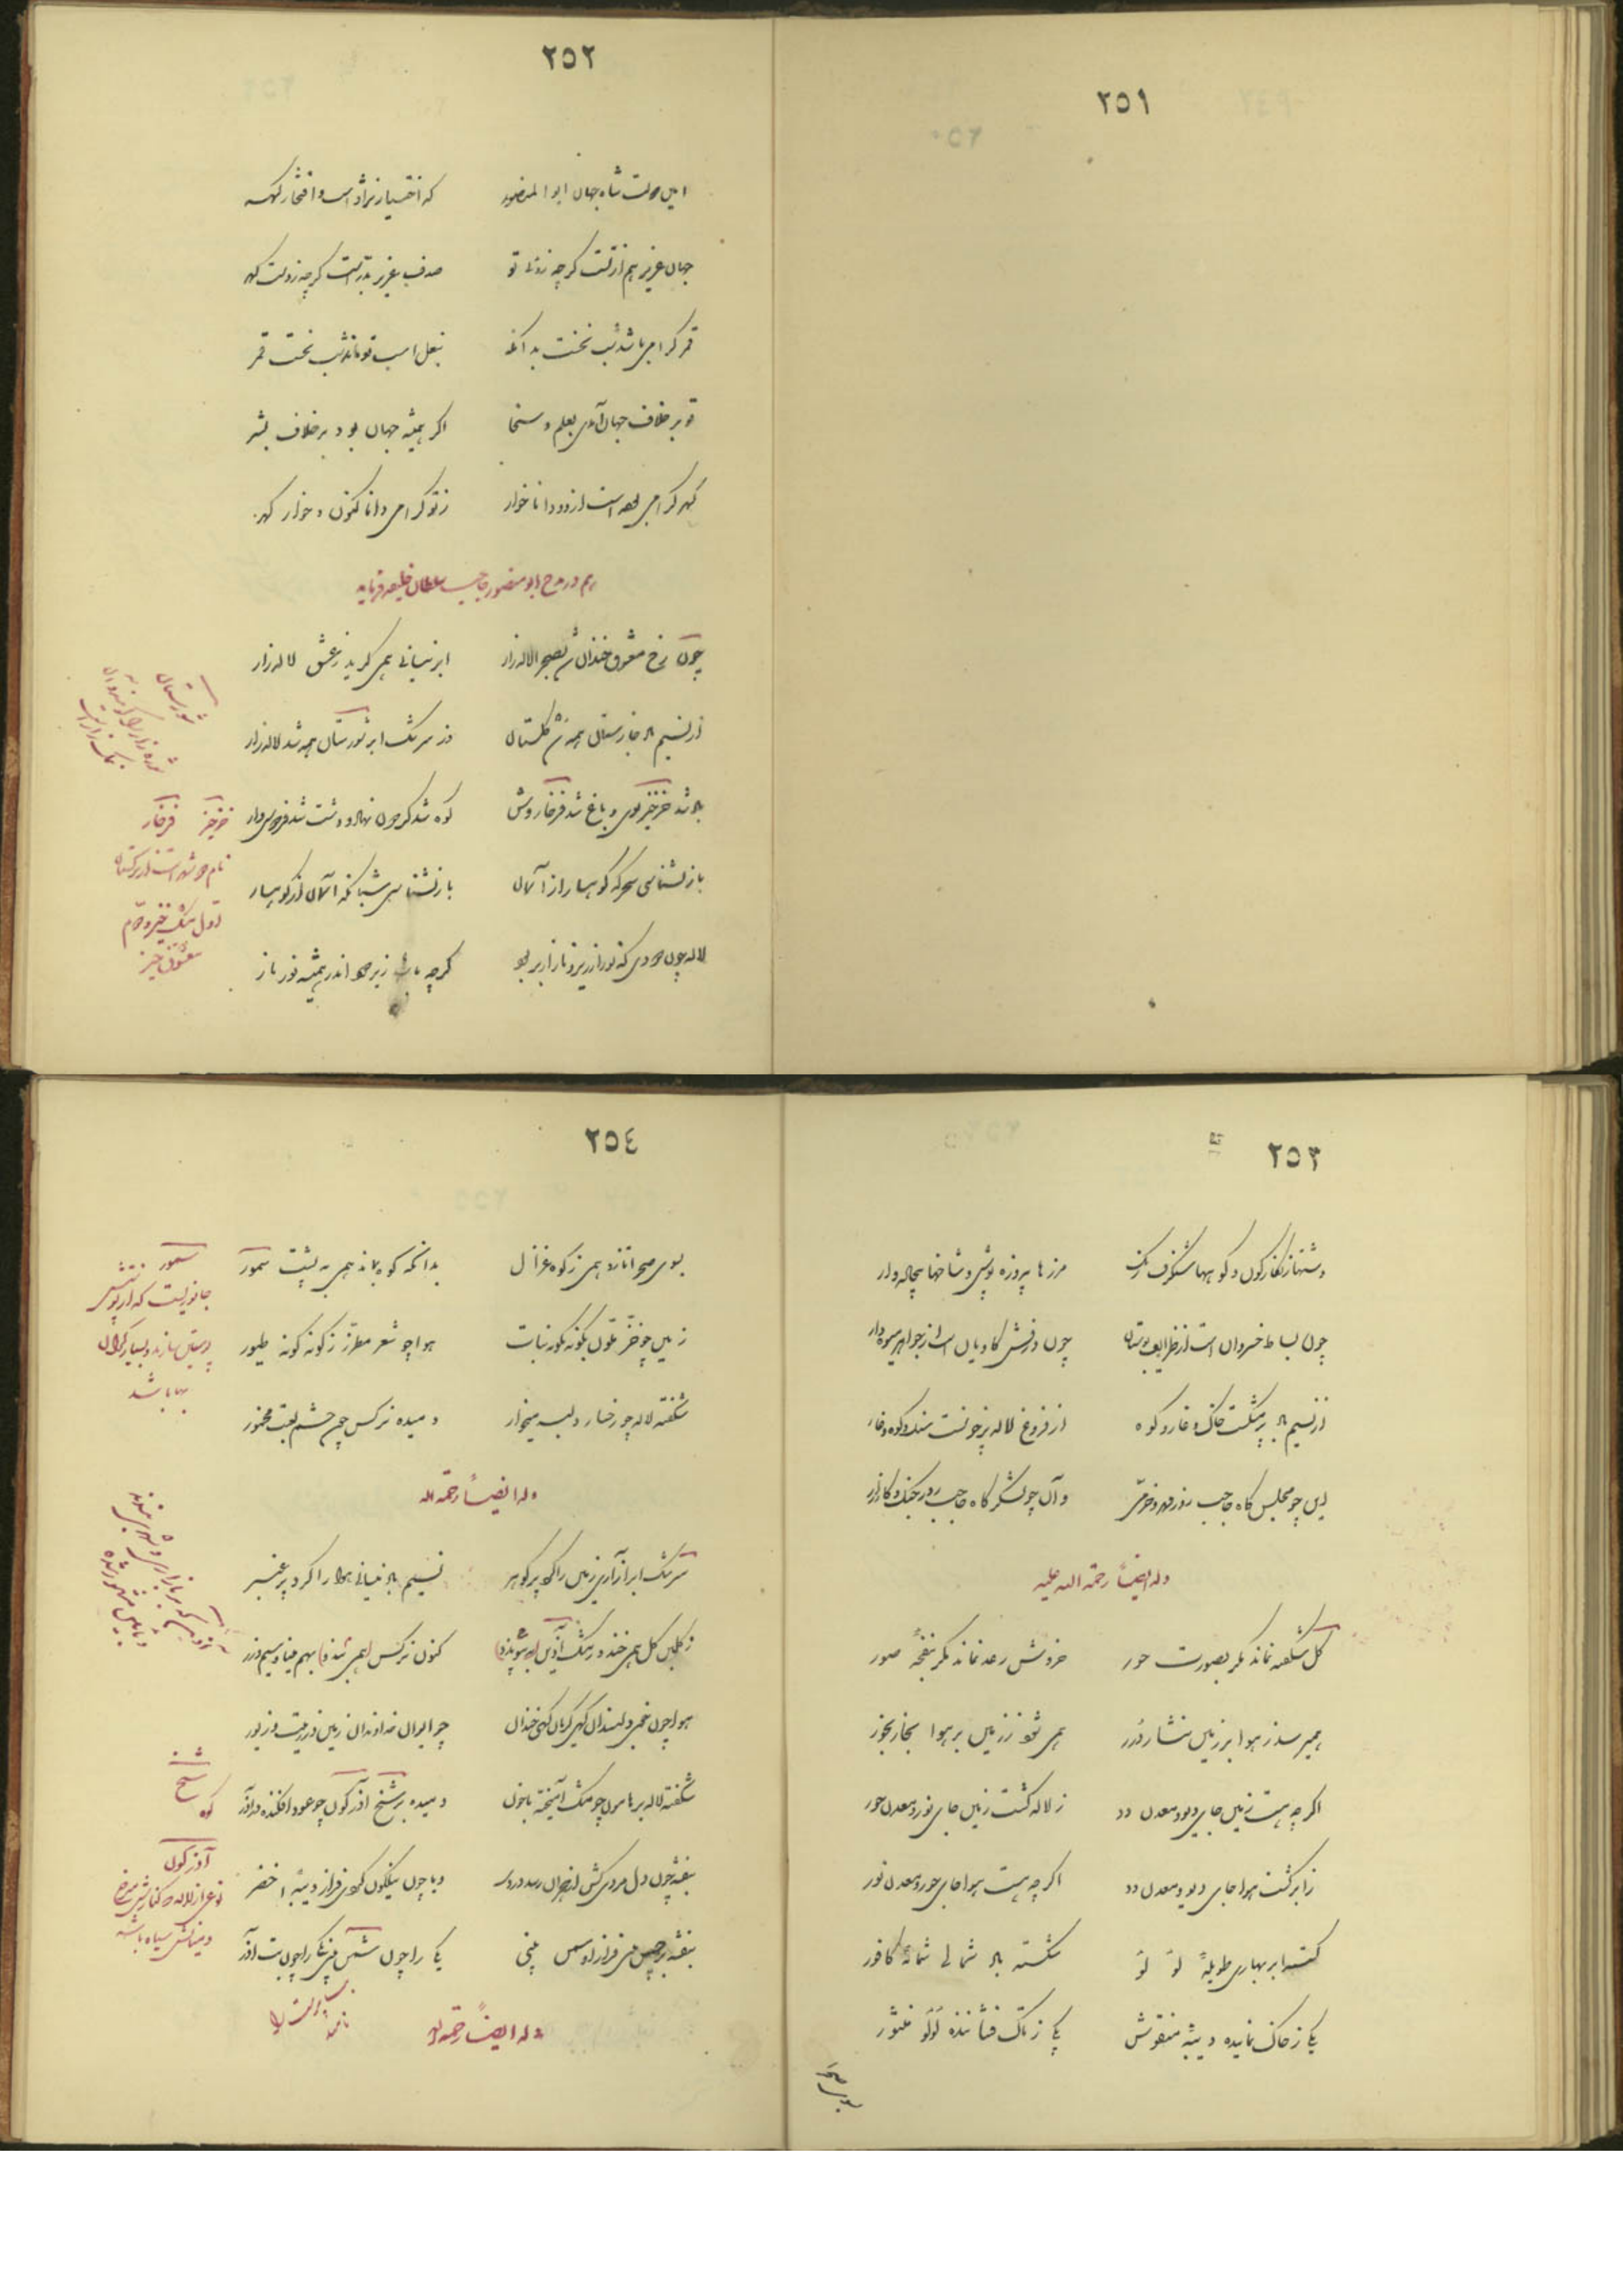 ٢٥١
٢٥٢
امین دولت شاه جهان ابوالمنصور که اختیار نژاد است و افتخار گهر
جهان عزیز هم از تست گرچه زوئی تو صدف عزیز بدر است گرچه زوست گهر
قمر گرامی باشد بشب نخست بدانکه بنعل اسب تو ماند بشب نخست قمر
تو بر خلاف جهان آمدی بعلم و سخا اگر همیشه جهان بود بر خلاف بشر
گهر گرامی بوده است ازو و دانا خوار ز تو گرامی دانا کنون و خوار گهر
هم در مدح ابو منصور حاجب سلطان خلیفه فرماید
چون رخ معشوق خندان شد بصحرا لاله زار ابر نیسانی همی گرید ز عشق لاله زار
از نسیم باد خارستان همه شد گلستان وز سرشک ابر شورستان همه شد لاله زار
باد شد خرخیز بوی و باغ شد فرخار وش کوه شد گرچون بهار و دشت شد فردوس وار
باز نشناسی سحرگه کوهسار از آسمان باز نشناسی شبانگه آسمان از کوهسار
لاله چون دودی که نور از زیر و نار از بر بود گرچه باشد زیر دود اندر همیشه نور نار
شورستان
شوره زار را گویند
نمک زار است
خرخیز فرخار
نام دو شهر است از ترکستان
اول مشک خیز و دوم
معشوق خیز
٢٥٣
دشتها زنگارگون و کوهها شنگرف رنگ مرزها پیروزه پوش و شاخها بیجاده وار
چون بساط خسروان است از ظرایف بوستان چون درفش کاویان است از جواهر میوه دار
از نسیم باد پر مشکست خاک و غار و کوه از فروغ لاله پر خونست سنگ و کوه و غار
این چو مجلس گاه حاجب روز مهر و خرمی و آن چو لشکر گاه حاجب روز جنگ و کارزار
وله ایضاً رحمة الله علیه
گل شکفته نماند مگر بصورت حور خروش رعد نماند مگر بنفخهٔ صور
همی رسد ز هوا بر زمین نثار درر همی شود ز زمین بر هوا بخار بخور
اگرچه هست زمین جای دیو و معدن دد ز لاله گشت زمین جای نور و معدن حور
ز ابر گشت هوا جای دیو و معدن دد اگرچه هست هوا جای حور و معدن نور
گسسته ابر بهاری طویلهٔ لؤلؤ شکسته باد شمالی شمامهٔ کافور
یکی ز خاک نماینده دیبه منقوش یکی ز تاک فشاننده لؤلؤ منثور
بسوی صحرا
٢٥٤
بسوی صحرا تازد همی ز کوه غزال بدانکه کوه بماند همی به پشت سمور
زمین چو خز ملون بگونه گونه نبات هوا چو شعر مطرز ز گونه گونه طیور
شکفته لاله چو رخسار دلبر میخوار دمیده نرگس چون چشم لعبت مخمور
وله ایضاً رحمة الله
سرشک ابر آزاری زمین را کرد پر گوهر نسیم باد نیسانی هوا را کرد پر عنبر
ز گلبن گل همی خندد سرشک آذین کنون نرگس همی بهم مینا و سیم و زر
هوا چون خمی و لبندان گهی گریان گهی خندان چو ایوان خداوندان زمین در زینت و زیور
شکفته لاله بر هامون چو مشک آمیخته با خون دمیده بر شخ آذرگون چو عود افکنده در آذر
بنفشه چون دل مردی کش از هجران رسد دردی و یا چون نیلگون گردی فراز دیبهٔ اخضر
بنفشه بر چمن بینی فراز او سمن بینی یکی را چون شمن بینی یکی را چون بت آزر
وله ایضاً رحمة الله
سمور
جانوریست که از پوستش
پوستین سازند و بسیار گران
بها باشد
شخ
کوه
آذرگون
نوعی از لاله که کنارش سرخ
و میانش سیاه باشد